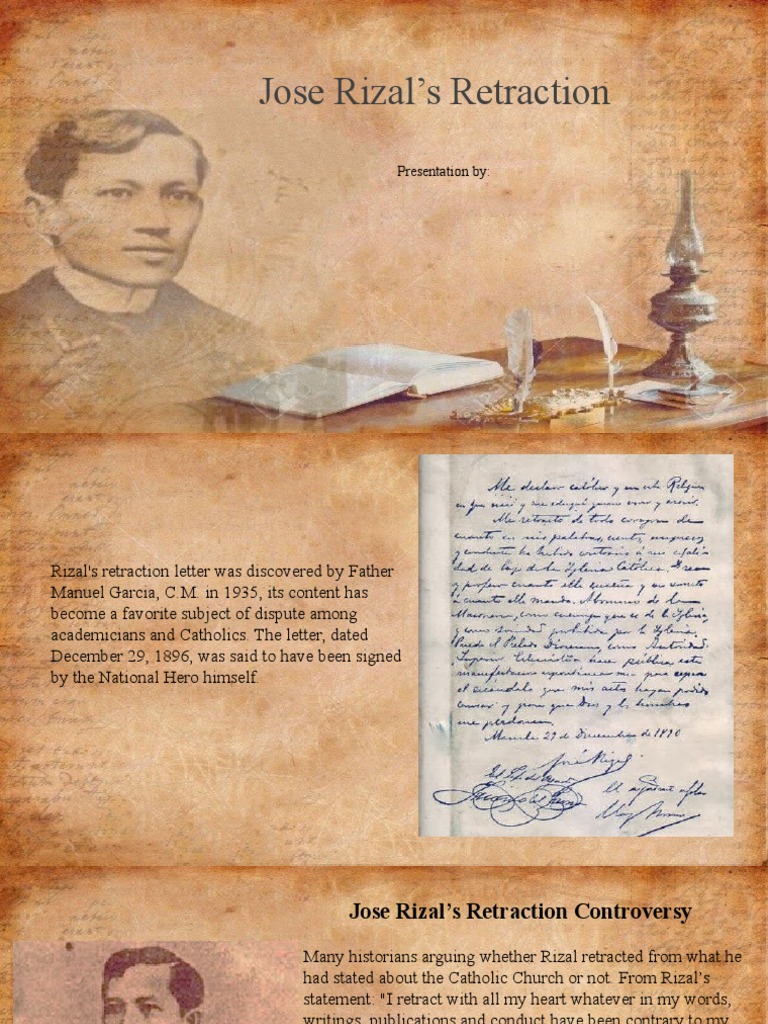 Jose Rizal’s Retraction
Presentation by:
Rizal's retraction letter was discovered by Father
Manuel Garcia, C.M. in 1935, its content has
become a favorite subject of dispute among
academicians and Catholics. The letter, dated
December 29, 1896, was said to have been signed
by the National Hero himself.
Me declaro católico y en esta Religion
en que nací y me eduqué quiero vivir y morir.
Me retracto de todo corazon de
cuanto en mis palabras, escritos, impresos
y conducta ha habido contrario á mi cuali
dad de hijo de la Iglesia Católica. Creo
y profeso cuanto ella enseña y me someto
á cuanto ella manda. Abomino de la
Masoneria, como enemiga que es de la Iglesia,
y como Sociedad prohibida por la Iglesia.
Puede el Prelado Diocesano, como Autoridad
Superior Eclesiástica hacer pública esta
manifestacion espontánea mia para reparar
el escándalo que mis actos hayan podido
causar y para que Dios y los hombres
me perdonen.
Manila 29 de Diciembre de 1890
José Rizal
Jose Rizal’s Retraction Controversy
Many historians arguing whether Rizal retracted from what he
had stated about the Catholic Church or not. From Rizal’s
statement: "I retract with all my heart whatever in my words,
writings, publications and conduct have been contrary to my